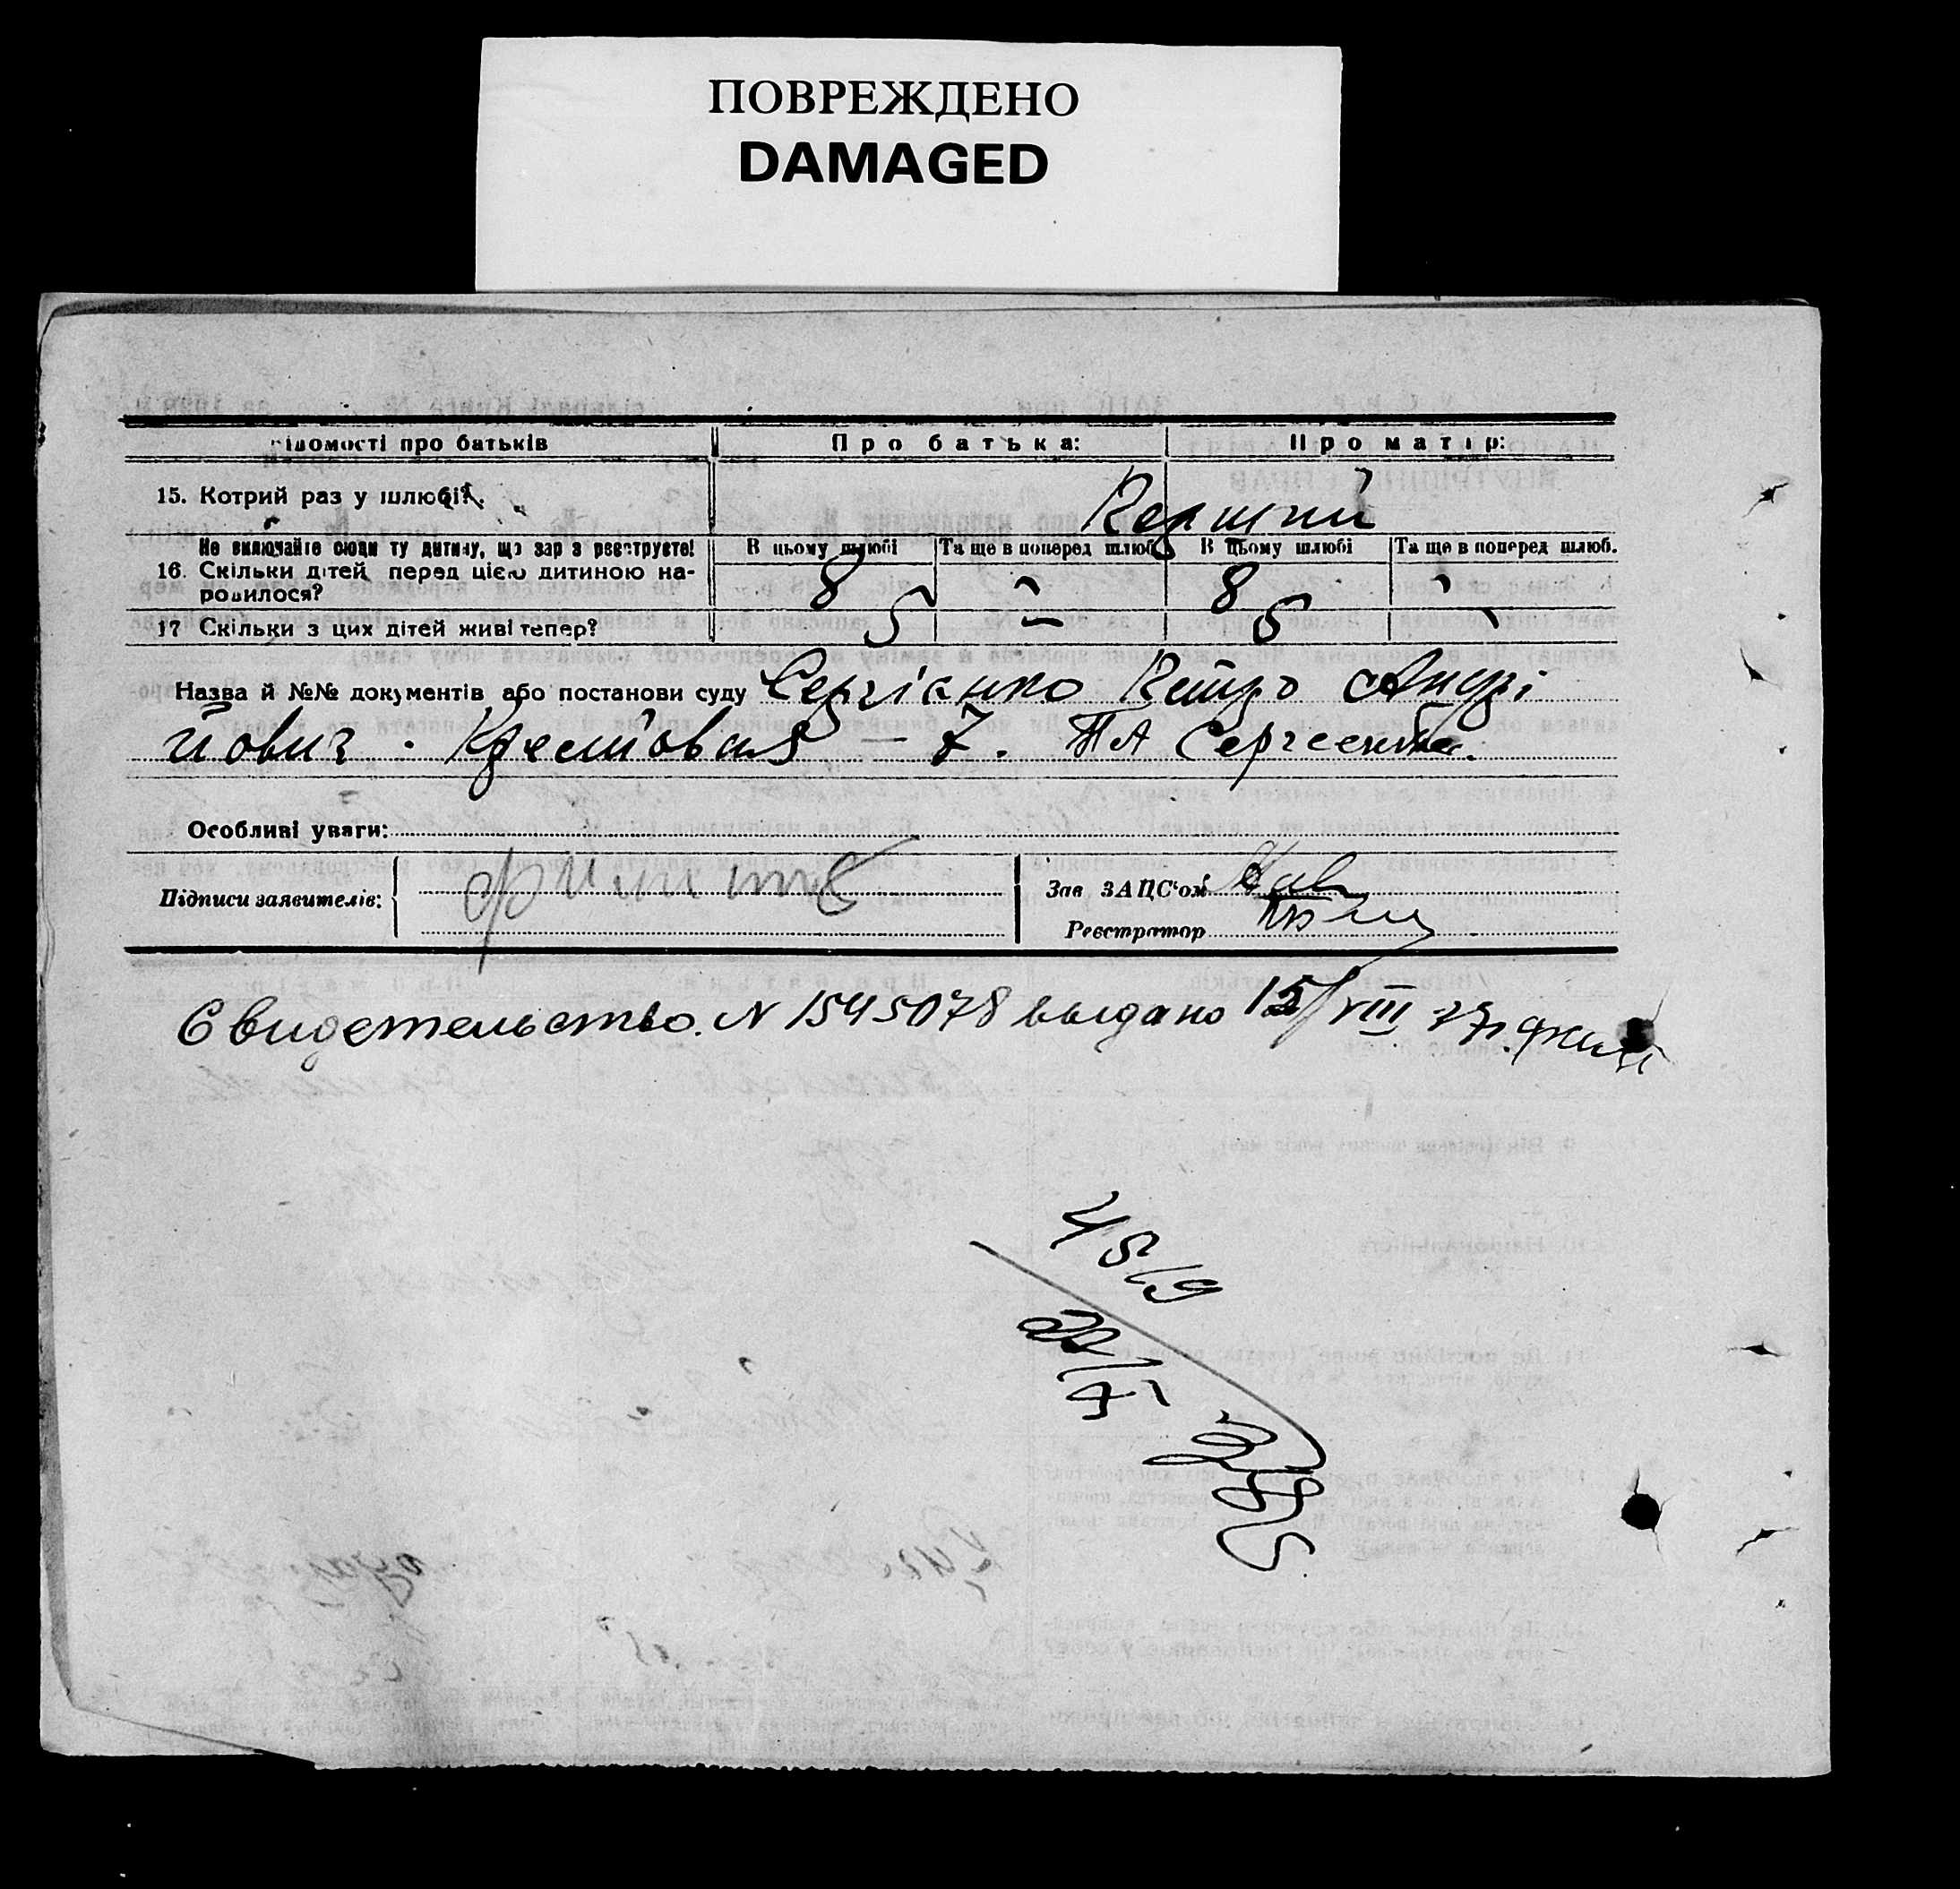 ПОВРЕЖДЕНО
DAMAGED
ідомості про батьків Про батька: Про матір:
15. Котрий раз у шлюбі? Перший
Не включайте сюди ту дитину, що зараз реєструєте! В цьому шлюбі Та ще в поперед шлюб. В цьому шлюбі Та ще в поперед шлюб.
16. Скільки дітей перед цією дитиною на-
родилося? 8 – 8 –
17 Скільки з цих дітей живі тепер? 5 – 5 –
Назва й №№ документів або постанови суду Сергієнко Петро Андрі
йович. – 7.
Особливі уваги:
Підписи заявителів: Зав ЗАЦС'ом
Реєстратор
Свидетельство. N 1545078 выдано 15/VIII
4519